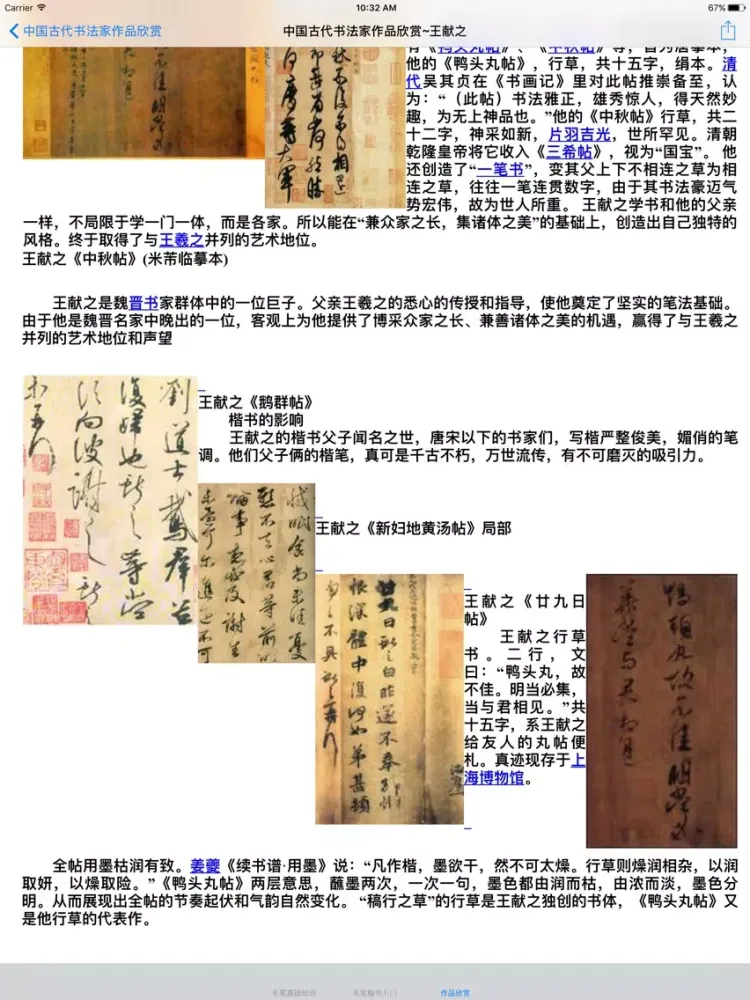 Carrier
10:32 AM
67%
中国古代书法家作品欣赏
中国古代书法家作品欣赏~王献之
有《鸭头丸帖》、《中秋帖》等，皆为唐摹本，
他的《鸭头丸帖》，行草，共十五字，绢本。清
代吴其贞在《书画记》里对此帖推崇备至，认
为：“（此帖）书法雅正，雄秀惊人，得天然妙
趣，为无上神品也。”他的《中秋帖》行草，共二
十二字，神采如新，片羽吉光，世所罕见。清朝
乾隆皇帝将它收入《三希帖》，视为“国宝”。 他
还创造了“一笔书”，变其父上下不相连之草为相
连之草，往往一笔连贯数字，由于其书法豪迈气
势宏伟，故为世人所重。 王献之学书和他的父亲
一样，不局限于学一门一体，而是各家。所以能在“兼众家之长，集诸体之美”的基础上，创造出自己独特的
风格。终于取得了与王羲之并列的艺术地位。
王献之《中秋帖》(米芾临摹本)
王献之是魏晋书家群体中的一位巨子。父亲王羲之的悉心的传授和指导，使他奠定了坚实的笔法基础。
由于他是魏晋名家中晚出的一位，客观上为他提供了博采众家之长、兼善诸体之美的机遇，赢得了与王羲之
并列的艺术地位和声望
劉道士鵞群並
復歸也獻之等當
須向彼謝之獻
王献之《鹅群帖》
楷书的影响
王献之的楷书父子闻名之世，唐宋以下的书家们，写楷严整俊美，媚俏的笔
调。他们父子俩的楷笔，真可是千古不朽，万世流传，有不可磨灭的吸引力。
王献之《新妇地黄汤帖》局部
廿九日獻之白昨遂不奉
恨深體中復何如弟甚頓
匆匆不具獻之再拜
王献之《廿九日
帖》
王献之行草
书。二行，文
曰：“鸭头丸，故
不佳。明当必集，
当与君相见。”共
十五字，系王献之
给友人的丸帖便
札。真迹现存于上
海博物馆。
鴨頭丸故不佳明當必
集當與君相見
全帖用墨枯润有致。姜夔《续书谱·用墨》说：“凡作楷，墨欲干，然不可太燥。行草则燥润相杂，以润
取妍，以燥取险。”《鸭头丸帖》两层意思，蘸墨两次，一次一句，墨色都由润而枯，由浓而淡，墨色分
明。从而展现出全帖的节奏起伏和气韵自然变化。 “稿行之草”的行草是王献之独创的书体，《鸭头丸帖》又
是他行草的代表作。
毛笔基础知识
毛笔楷书入门
作品欣赏